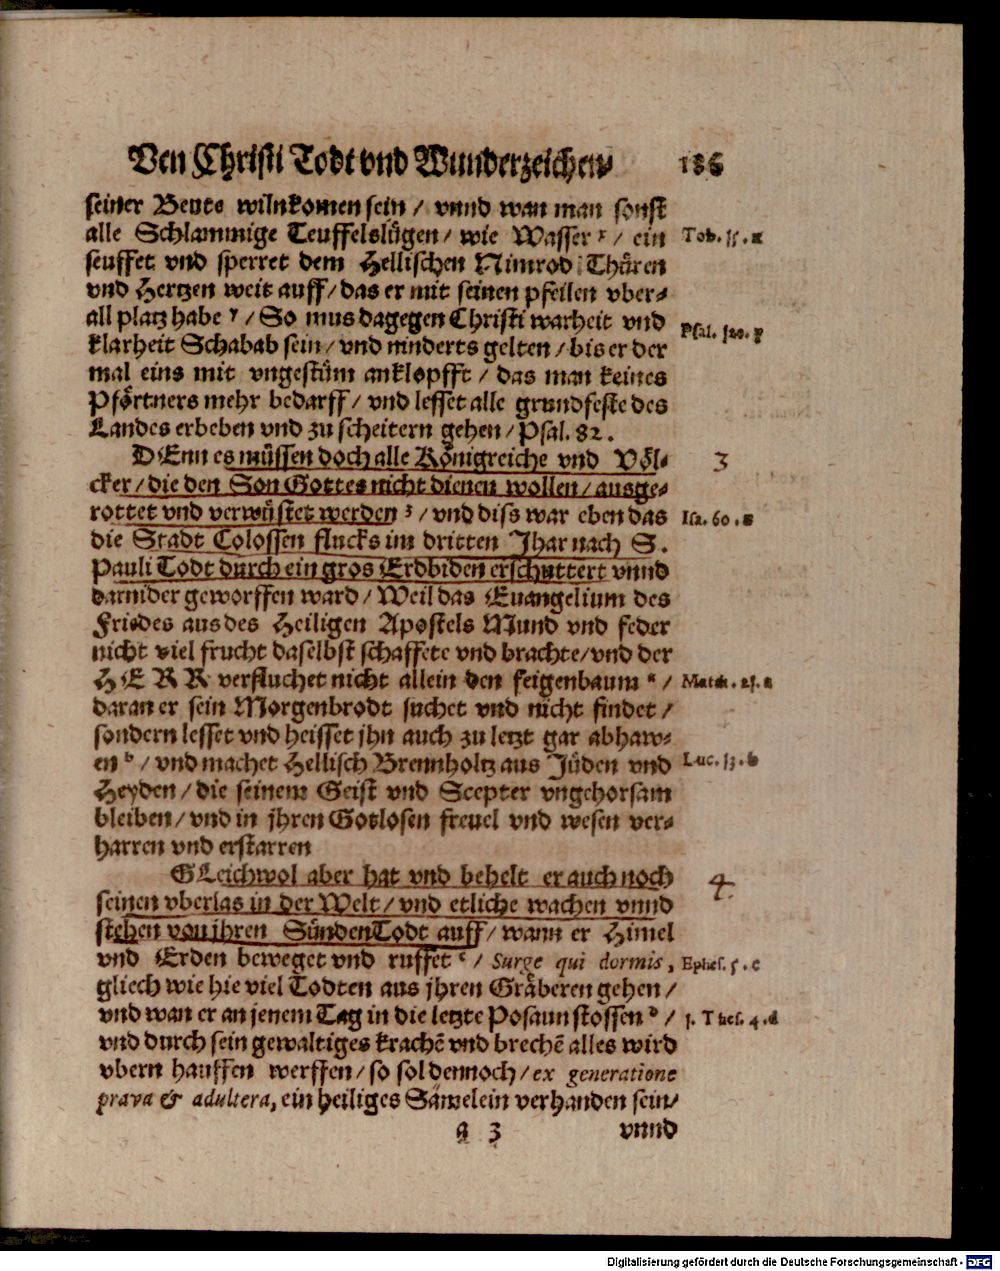 Von Christi Todt vnd Wunderzeichen/ 186
seiner Beute wilnkomen sein / vnnd wan man sonst
alle Schlammige Teuffelslügen / wie Wasser x / ein Tob. 15. a
seuffet vnd sperret dem Hellischen Nimrod Thüren
vnd Hertzen weit auff / das er mit seinen pfeilen vber-
all platz habe y / So mus dagegen Christi warheit vnd Psal. 120. y
klarheit Schabab sein / vnd ninderts gelten / bis er der
mal eins mit vngestüm anklopfft / das man keines
Pförtners mehr bedarff / vnd lesset alle grundfeste des
Landes erbeben vnd zu scheitern gehen / Psal. 82.
DEnn es müssen doch alle Königreiche vnd Völ- 3
cker / die den Son Gottes nicht dienen wollen / ausge-
rottet vnd verwüstet werden z / vnd diss war eben das Isa. 60. z
die Stadt Colossen flucks im dritten Jhar nach S.
Pauli Todt durch ein gros Erdbiden erschuttert vnnd
darnider geworffen ward / Weil das Euangelium des
Friedes aus des Heiligen Apostels Mund vnd feder
nicht viel frucht daselbst schaffete vnd brachte / vnd der
HERR verfluchet nicht allein den feigenbaum a / Matth. 21. a
daran er sein Morgenbrodt suchet vnd nicht findet /
sondern lesset vnd heisset jhn auch zu letzt gar abhaw-
en b / vnd machet Hellisch Brennholtz aus Jüden vnd Luc. 13. b
Heyden / die seinem Geist vnd Scepter vngehorsam
bleiben / vnd in jhren Gotlosen freuel vnd wesen ver-
harren vnd erstarren
GLeichwol aber hat vnd behelt er auch noch 4
seinen vberlas in der Welt / vnd etliche wachen vnnd
stehen von ihren SündenTodt auff / wann er Himel
vnd Erden beweget vnd ruffet c / Surge qui dormis, Ephes. 5. c
gliech wie hie viel Todten aus jhren Gräberen gehen /
vnd wan er an jenem Tag in die letzte Posaun stossen d / 1. Thes. 4. d
vnd durch sein gewaltiges krachẽ vnd brechẽ alles wird
vbern hauffen werffen / so sol dennoch / ex generatione
prava & adultera, ein heiliges Sämelein verhanden sein/
a 3 vnnd
Digitalisierung gefördert durch die Deutsche Forschungsgemeinschaft - DFG